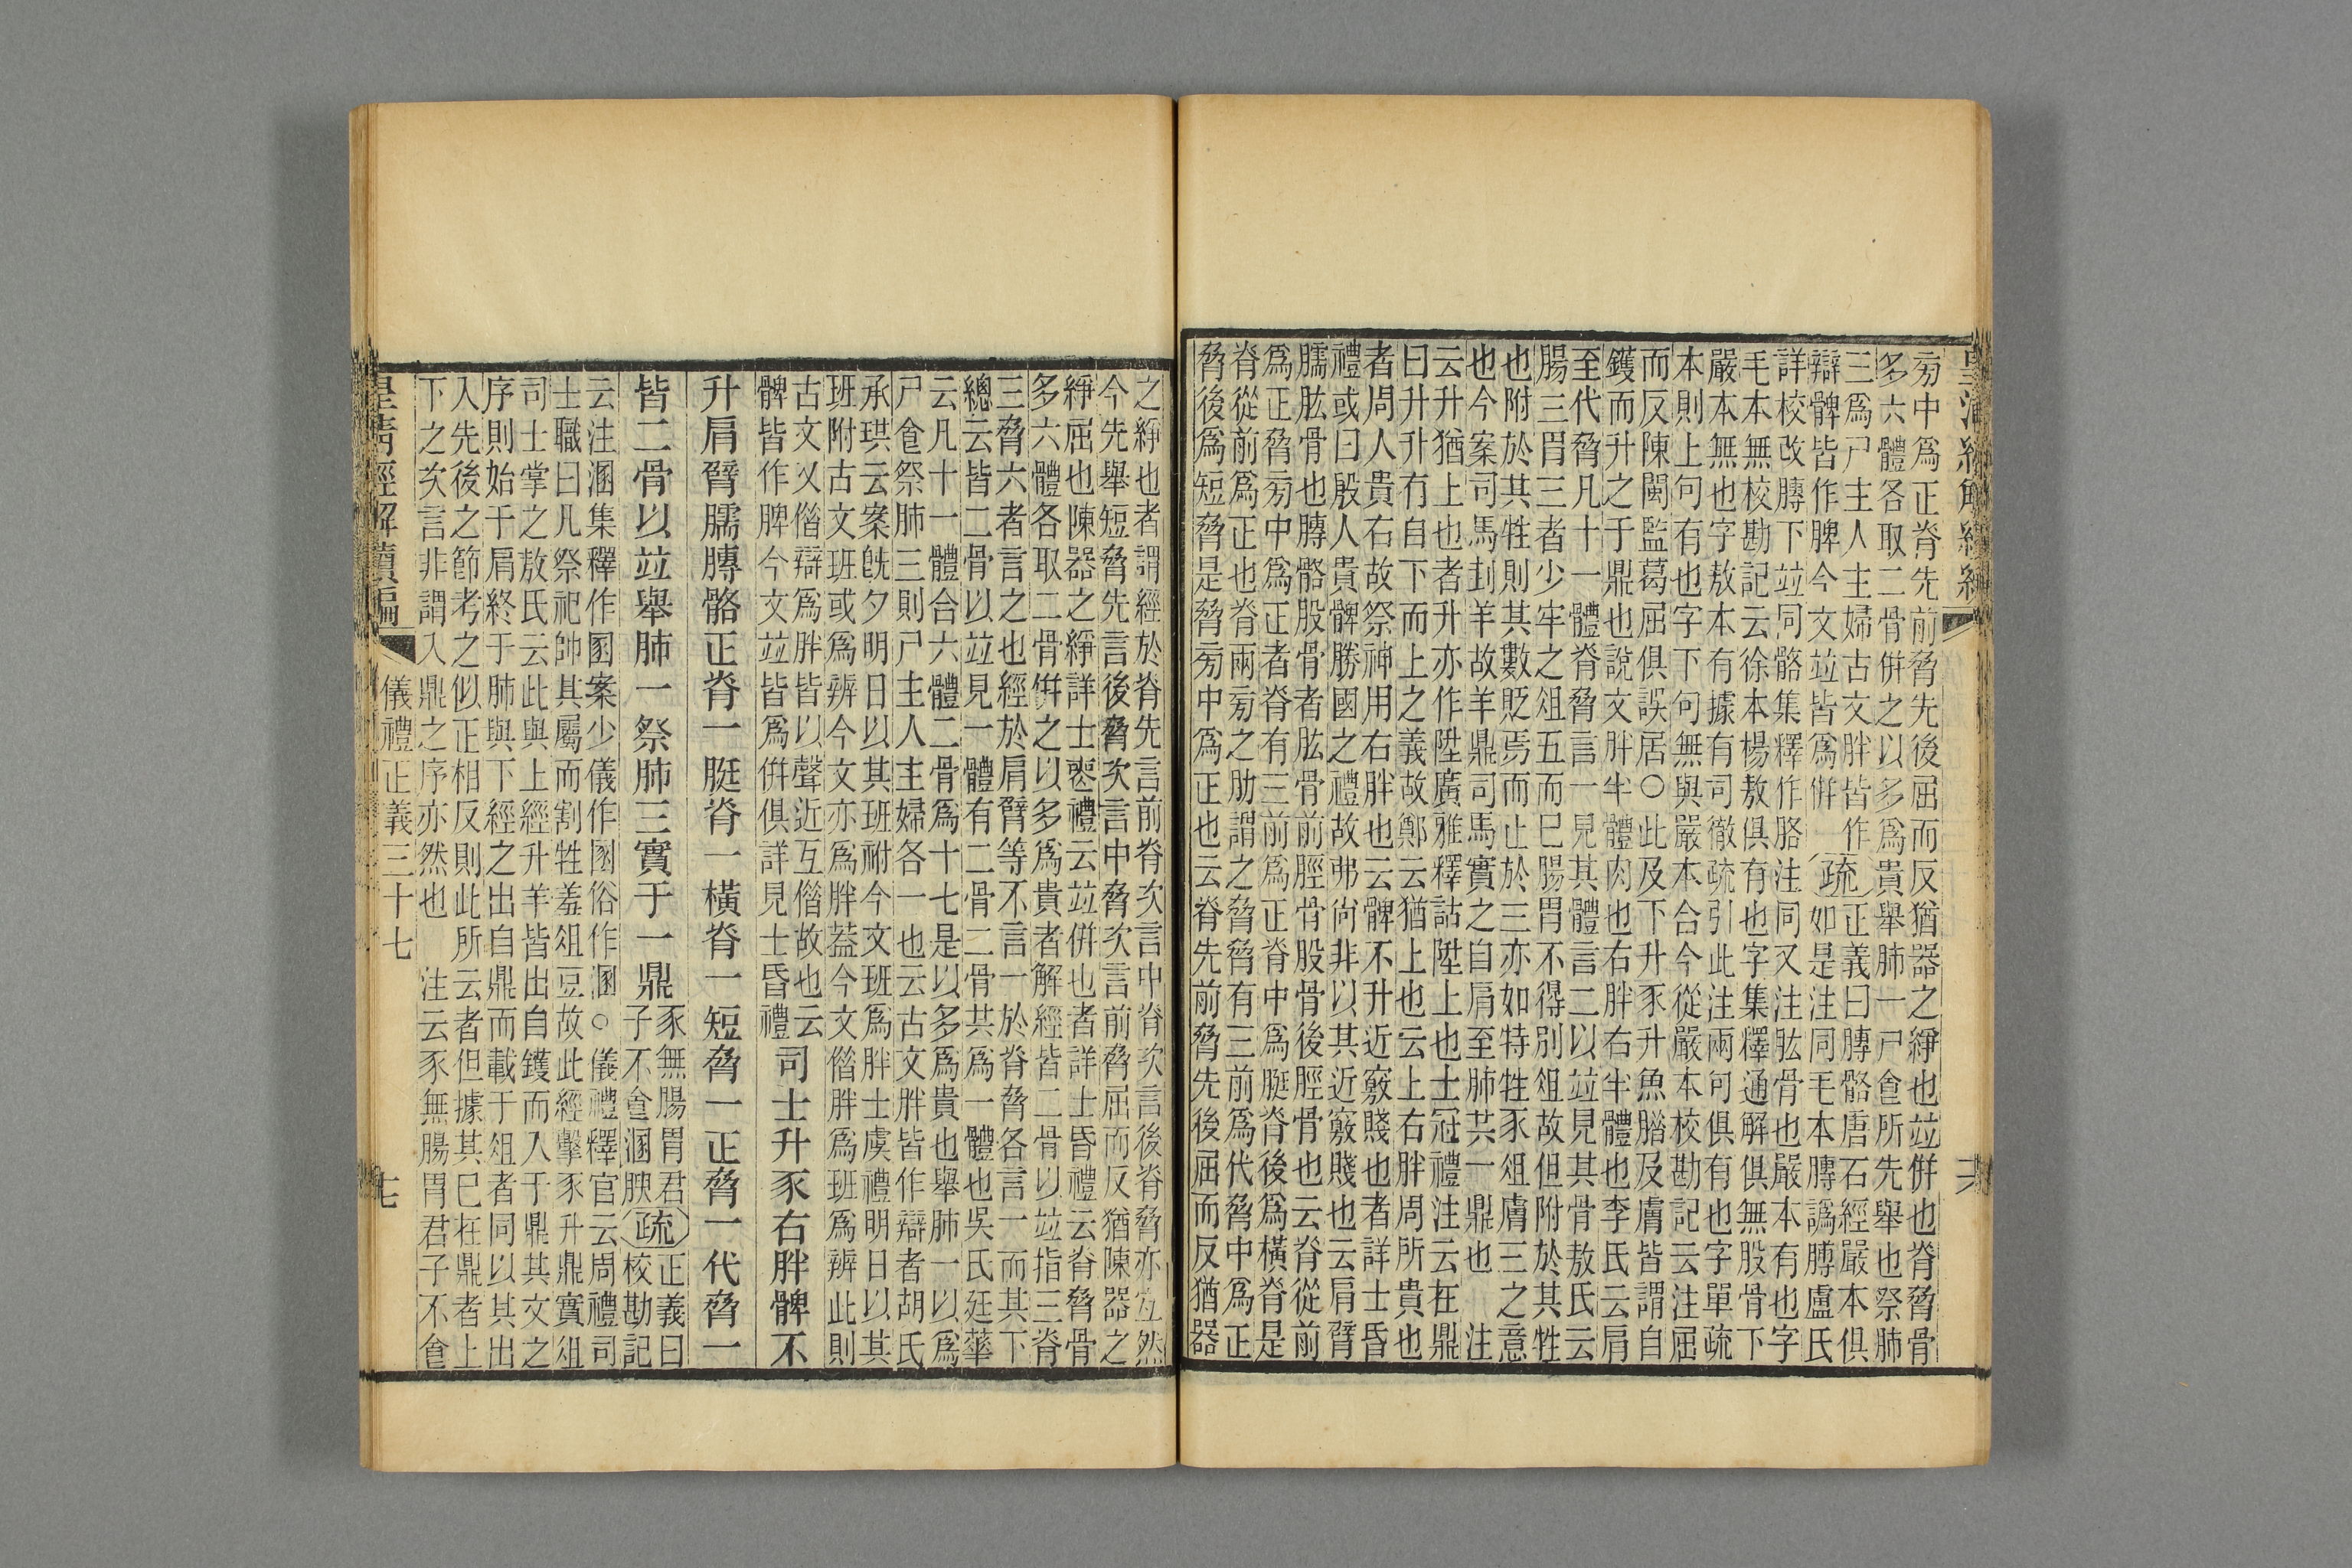 皇清經解續編
旁中爲正脊先前脅先後屈而反猶器之綪也竝倂也脊脅骨
多六體各取二骨倂之以多爲貴舉肺一尸食所先舉也祭肺
三爲尸主人主婦古文胖皆作
辯髀皆作脾今文竝皆爲倂
疏
正義曰膊骼唐石經嚴本俱
如是注同毛本膊譌膞盧氏
詳校改膊下竝同骼集釋作胳注同又注肱骨也嚴本有也字
毛本無校勘記云徐本楊敖俱有也字集釋通解俱無股骨下
嚴本無也字敖本有據有司徹疏引此注兩句俱有也字單疏
本則上句有也字下句無與嚴本合今從嚴本校勘記云注屈
而反陳閩監葛屈俱誤居○此及下升豕升魚腊及膚皆謂自
鑊而升之于鼎也說文胖半體肉也右胖右半體也李氏云肩
至代脅凡十一體脊脅言一見其體言二以竝見其骨敖氏云
腸三胃三者少牢之俎五而已腸胃不得別俎故但附於其牲
也附於其牲則其數貶焉而止於三亦如特牲豕俎膚三之意
也今案司馬刲羊故羊鼎司馬實之自肩至肺共一鼎也 注
云升猶上也者升亦作陞廣雅釋詁陞上也士冠禮注云在鼎
曰升升有自下而上之義故鄭云猶上也云上右胖周所貴也
者周人貴右故祭神用右胖也云髀不升近竅賤也者詳士昏
禮或曰殷人貴髀勝國之禮故弗尙非以其近竅賤也云肩臂
臑肱骨也膊骼股骨者肱骨前脛骨股骨後脛骨也云脊從前
爲正脅旁中爲正者脊有三前爲正脊中爲脡脊後爲橫脊是
脊從前爲正也脊兩旁之肋謂之脅脅有三前爲代脅中爲正
脅後爲短脅是脅旁中爲正也云脊先前脅先後屈而反猶器
之綪也者謂經於脊先言前脊次言中脊次言後脊脅亦宜然
今先舉短脅先言後脅次言中脅次言前脅屈而反猶陳器之
綪屈也陳器之綪詳士喪禮云竝倂也者詳士昏禮云脊脅骨
多六體各取二骨倂之以多爲貴者解經皆二骨以竝指三脊
三脅六者言之也經於肩臂等不言一於脊脅各言一而其下
總云皆二骨以竝見一體有二骨二骨共爲一體也吳氏廷華
云凡十一體合六體二骨爲十七是以多爲貴也舉肺一以爲
尸食祭肺三則尸主人主婦各一也云古文胖皆作辯者胡氏
承珙云案旣夕明日以其班祔今文班爲胖士虞禮明日以其
班附古文班或爲辨今文亦爲胖葢今文偕胖爲班爲辨此則
古文乂偕辯爲胖皆以聲近互偕故也云
髀皆作脾今文竝皆爲倂俱詳見士昏禮
司士升豕右胖髀不
升肩臂臑膊骼正脊一脡脊一橫脊一短脅一正脅一代脅一
皆二骨以竝舉肺一祭肺三實于一鼎
豕無腸胃君
子不食溷腴
疏
正義曰
校勘記
云注溷集釋作圂案少儀作圂俗作溷○儀禮釋官云周禮司
士職曰凡祭祀帥其屬而割牲羞俎豆故此經擊豕升鼎實俎
司士掌之敖氏云此與上經升羊皆出自鑊而入于鼎其文之
序則始于肩終于肺與下經之出自鼎而載于俎者同以其出
入先後之節考之似正相反則此所云者但據其已在鼎者上
下之次言非謂入鼎之序亦然也 注云豕無腸胃君子不食
皇清經解續編
儀禮正義三十七